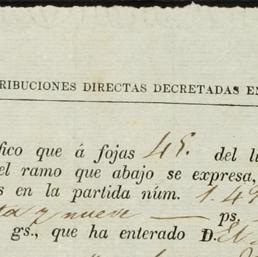 RIBUCIONES DIRECTAS DECRETADAS EN
fico que á fojas 45. del li
el ramo que abajo se expresa,
s en la partida núm. 1.49
ta y nueve — ps,
gs., que ha enterado D. El